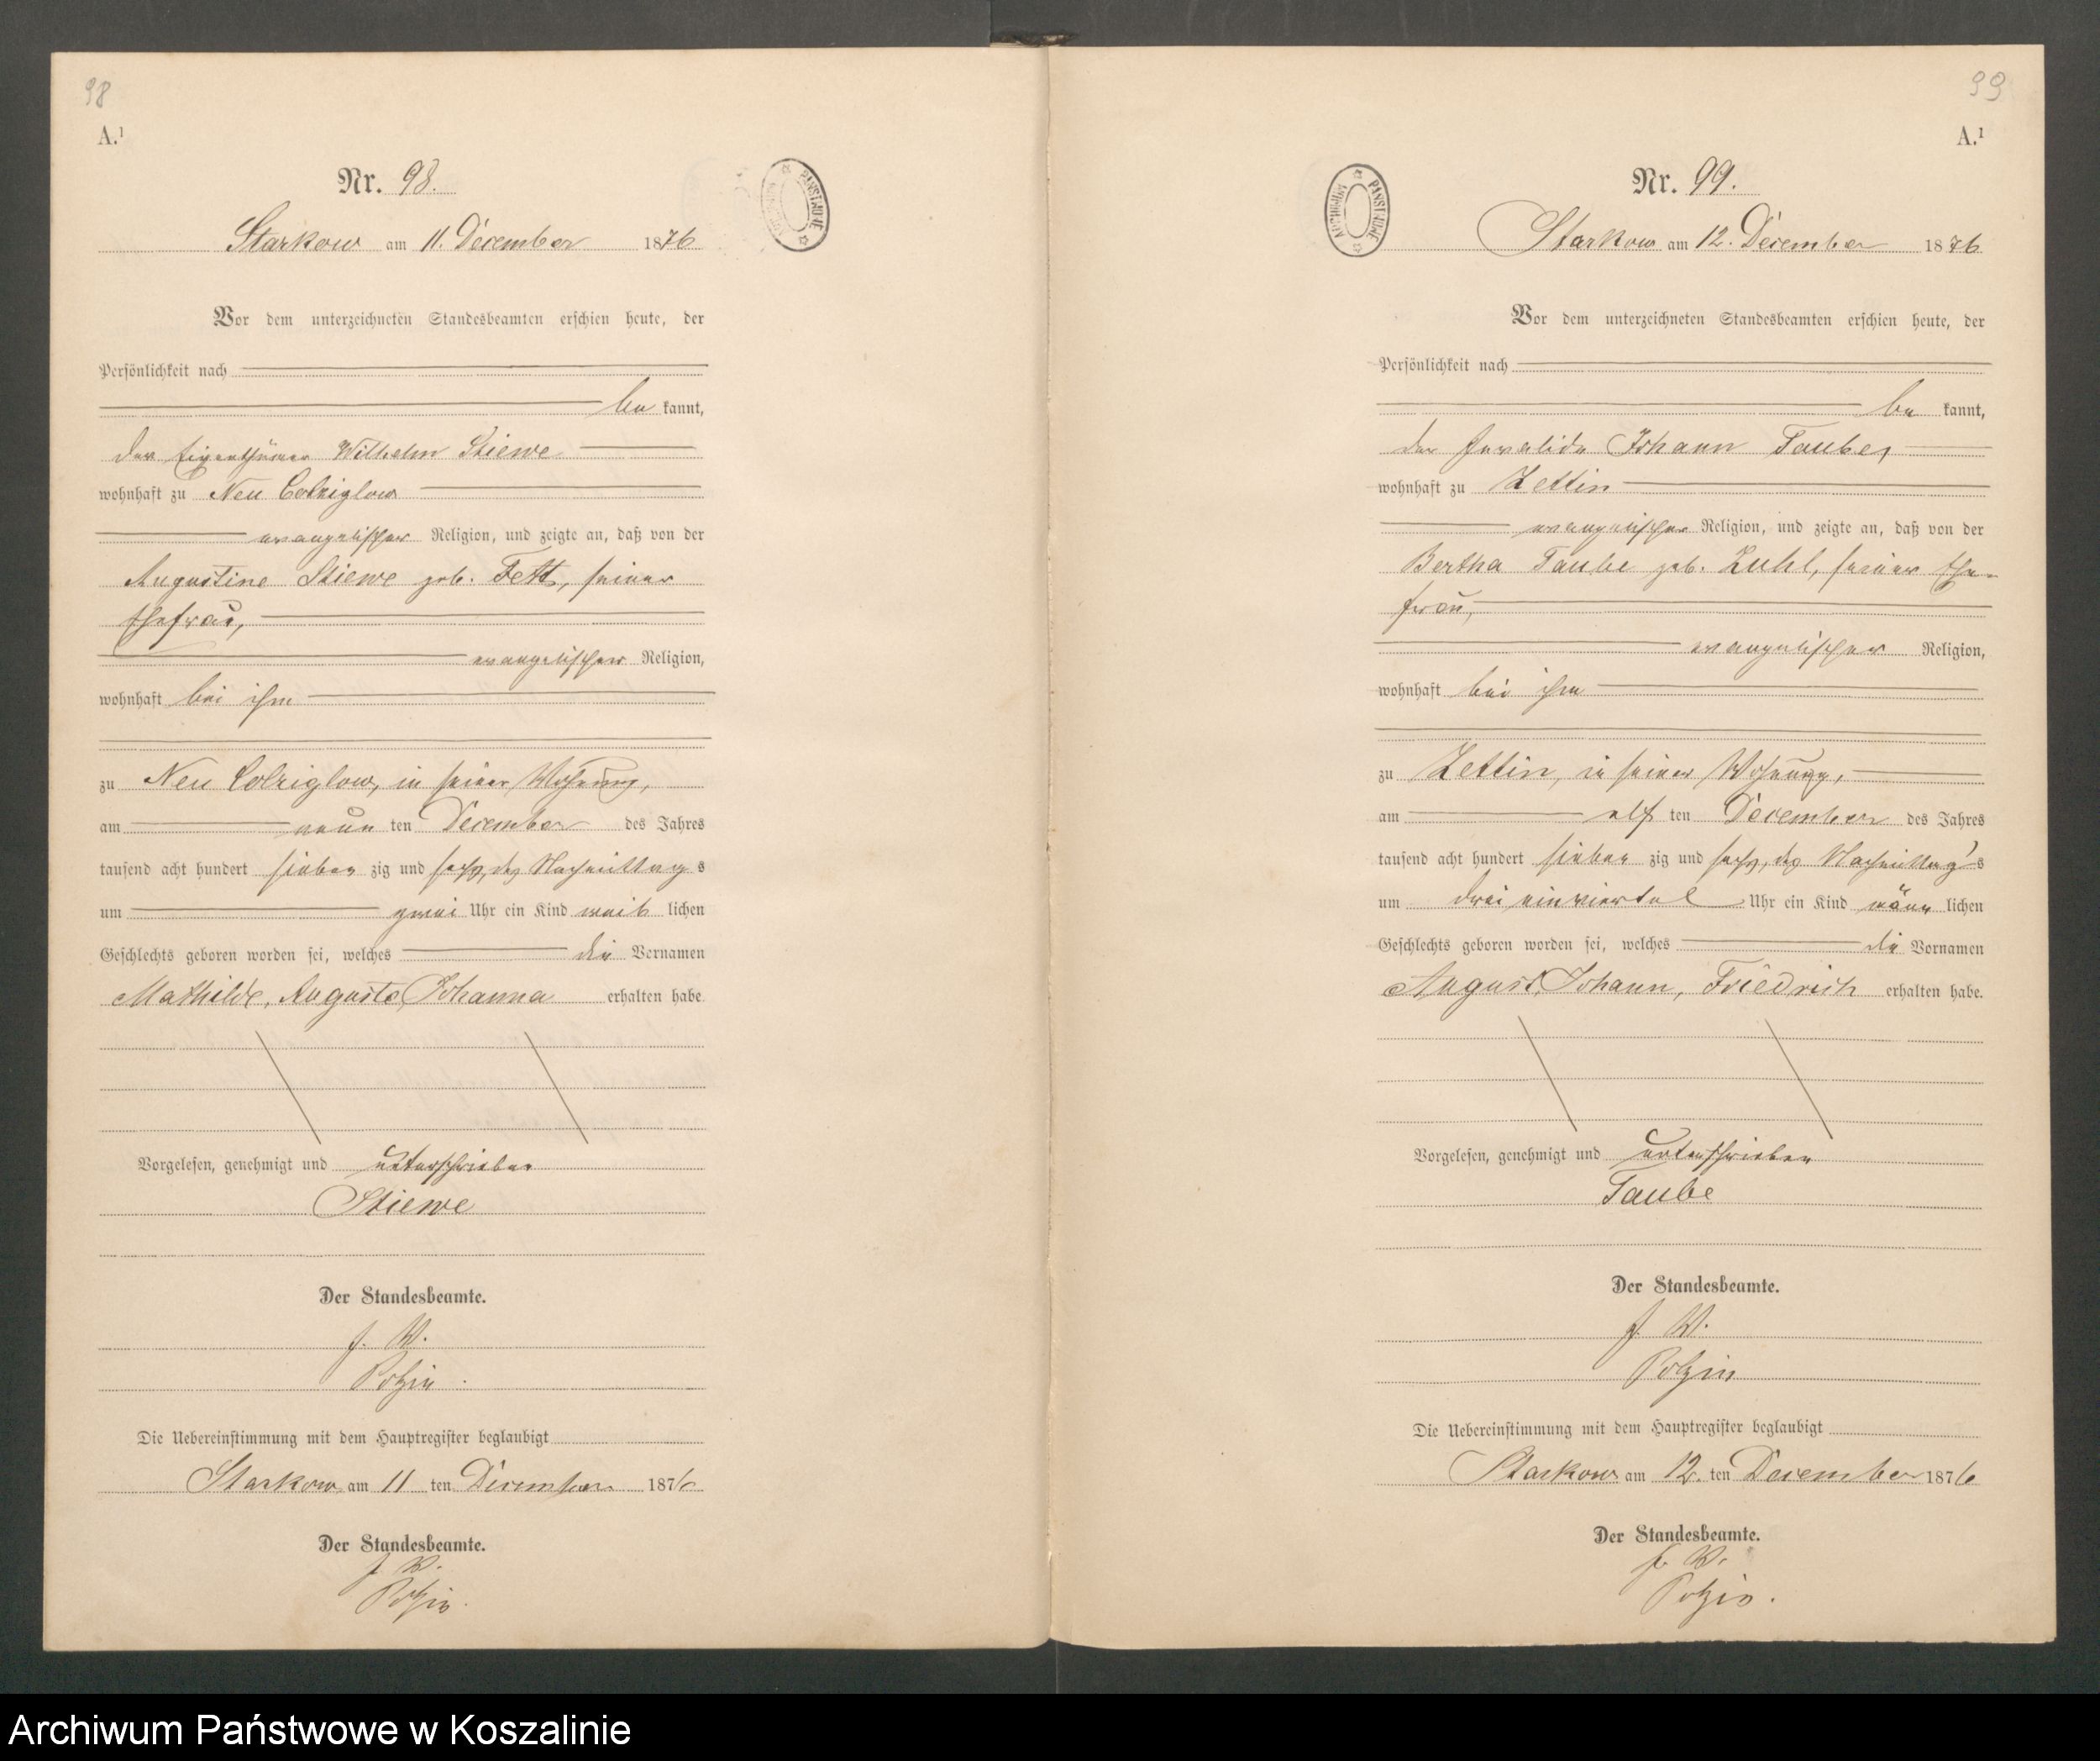 98
A.¹
Nr. 98.
ARCHIWUM PAŃSTWOWE
Starkow am 11. December 1876
Vor dem unterzeichneten Standesbeamten erschien heute, der
Persönlichkeit nach
be kannt,
der Eigenthümer Wilhelm Stiewe
wohnhaft zu Neu Colziglow
evangelischer Religion, und zeigte an, daß von der
Augustine Stiewe geb. Fett, seiner
Ehefrau,
evangelischer Religion,
wohnhaft bei ihm
zu Neu Colziglow, in seiner Wohnung,
am neun ten December des Jahres
tausend acht hundert sieben zig und sechs, des Nachmittag s
um zwei Uhr ein Kind weib lichen
Geschlechts geboren worden sei, welches die Vornamen
Mathilde, Auguste, Johanna erhalten habe.
Vorgelesen, genehmigt und unterschrieben
Stiewe
Der Standesbeamte.
J. V.
Potzin.
Die Uebereinstimmung mit dem Hauptregister beglaubigt
Starkow am 11 ten December 1876
Der Standesbeamte.
J. V.
Potzin.
99
A.¹
Nr. 99.
ARCHIWUM PAŃSTWOWE
Starkow am 12. December 1876
Vor dem unterzeichneten Standesbeamten erschien heute, der
Persönlichkeit nach
be kannt,
der Invalide Johann Taube,
wohnhaft zu Zettin
evangelischer Religion, und zeigte an, daß von der
Bertha Taube geb. Zuhl, seiner Ehe-
frau,
evangelischer Religion,
wohnhaft bei ihm
zu Zettin, in seiner Wohnung,
am elf ten December des Jahres
tausend acht hundert sieben zig und sechs, des Nachmittag's
um drei einviertel Uhr ein Kind männ lichen
Geschlechts geboren worden sei, welches die Vornamen
August, Johann, Friedrich erhalten habe.
Vorgelesen, genehmigt und unterschrieben
Taube
Der Standesbeamte.
J. V.
Potzin
Die Uebereinstimmung mit dem Hauptregister beglaubigt
Starkow am 12. ten December 1876
Der Standesbeamte.
J. V.
Potzin.
Archiwum Państwowe w Koszalinie